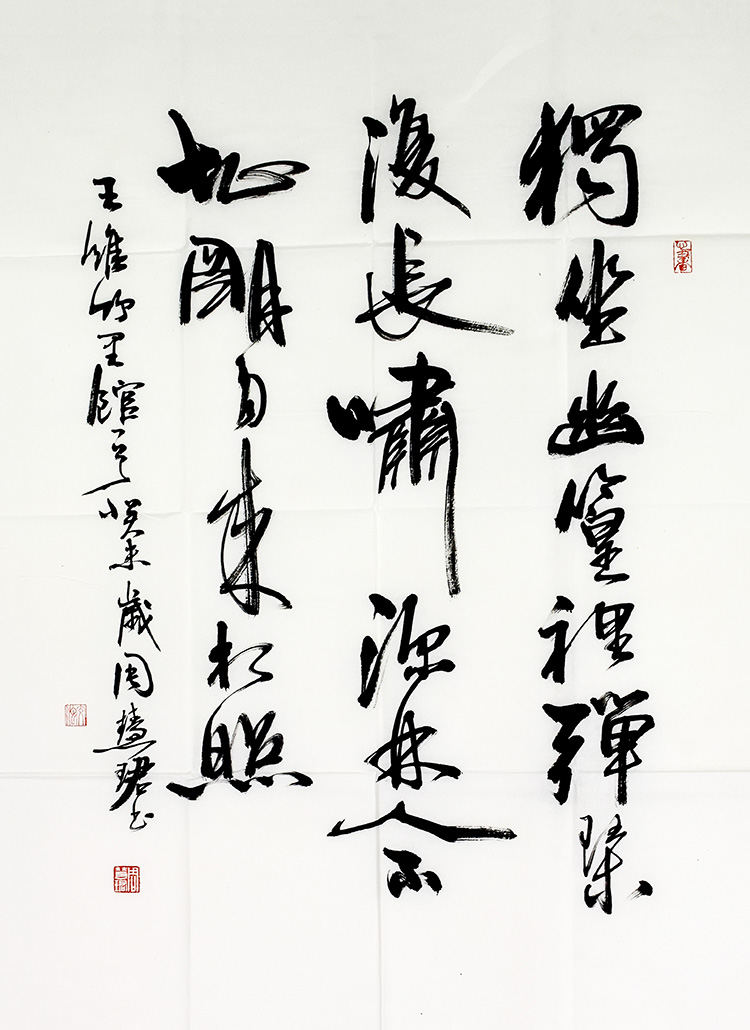 獨坐幽篁裡彈琴
復長嘯深林人不
知明月来相照
王維竹里館一首癸未歲周慧珺书